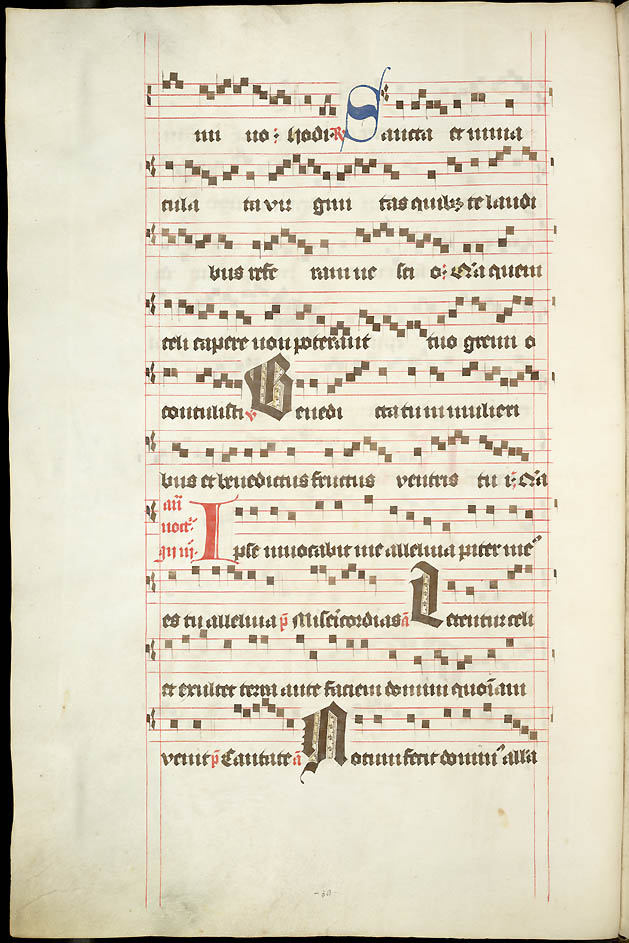 mi no : hodi R Sancta et inma
cula ta vir gini tas quibꝫ te laudi
bus refe ram ne sci o : Q̄a quem
celi capere non poterant tuo gremi o
contulisti v Benedi cta tu in mulieri
bus et benedictus fructus ventris tu i : Q̄a
an̄
noct᷑
in iij. Ipse invocabit me alleluia pater me᷒
es tu alleluia p̄ Misericordias a̅ Letentur celi
et exultet terra ante faciem domini quoīam
venit p̄ Cantate a̅ Notum fecit domin᷒ alla
- 30 -